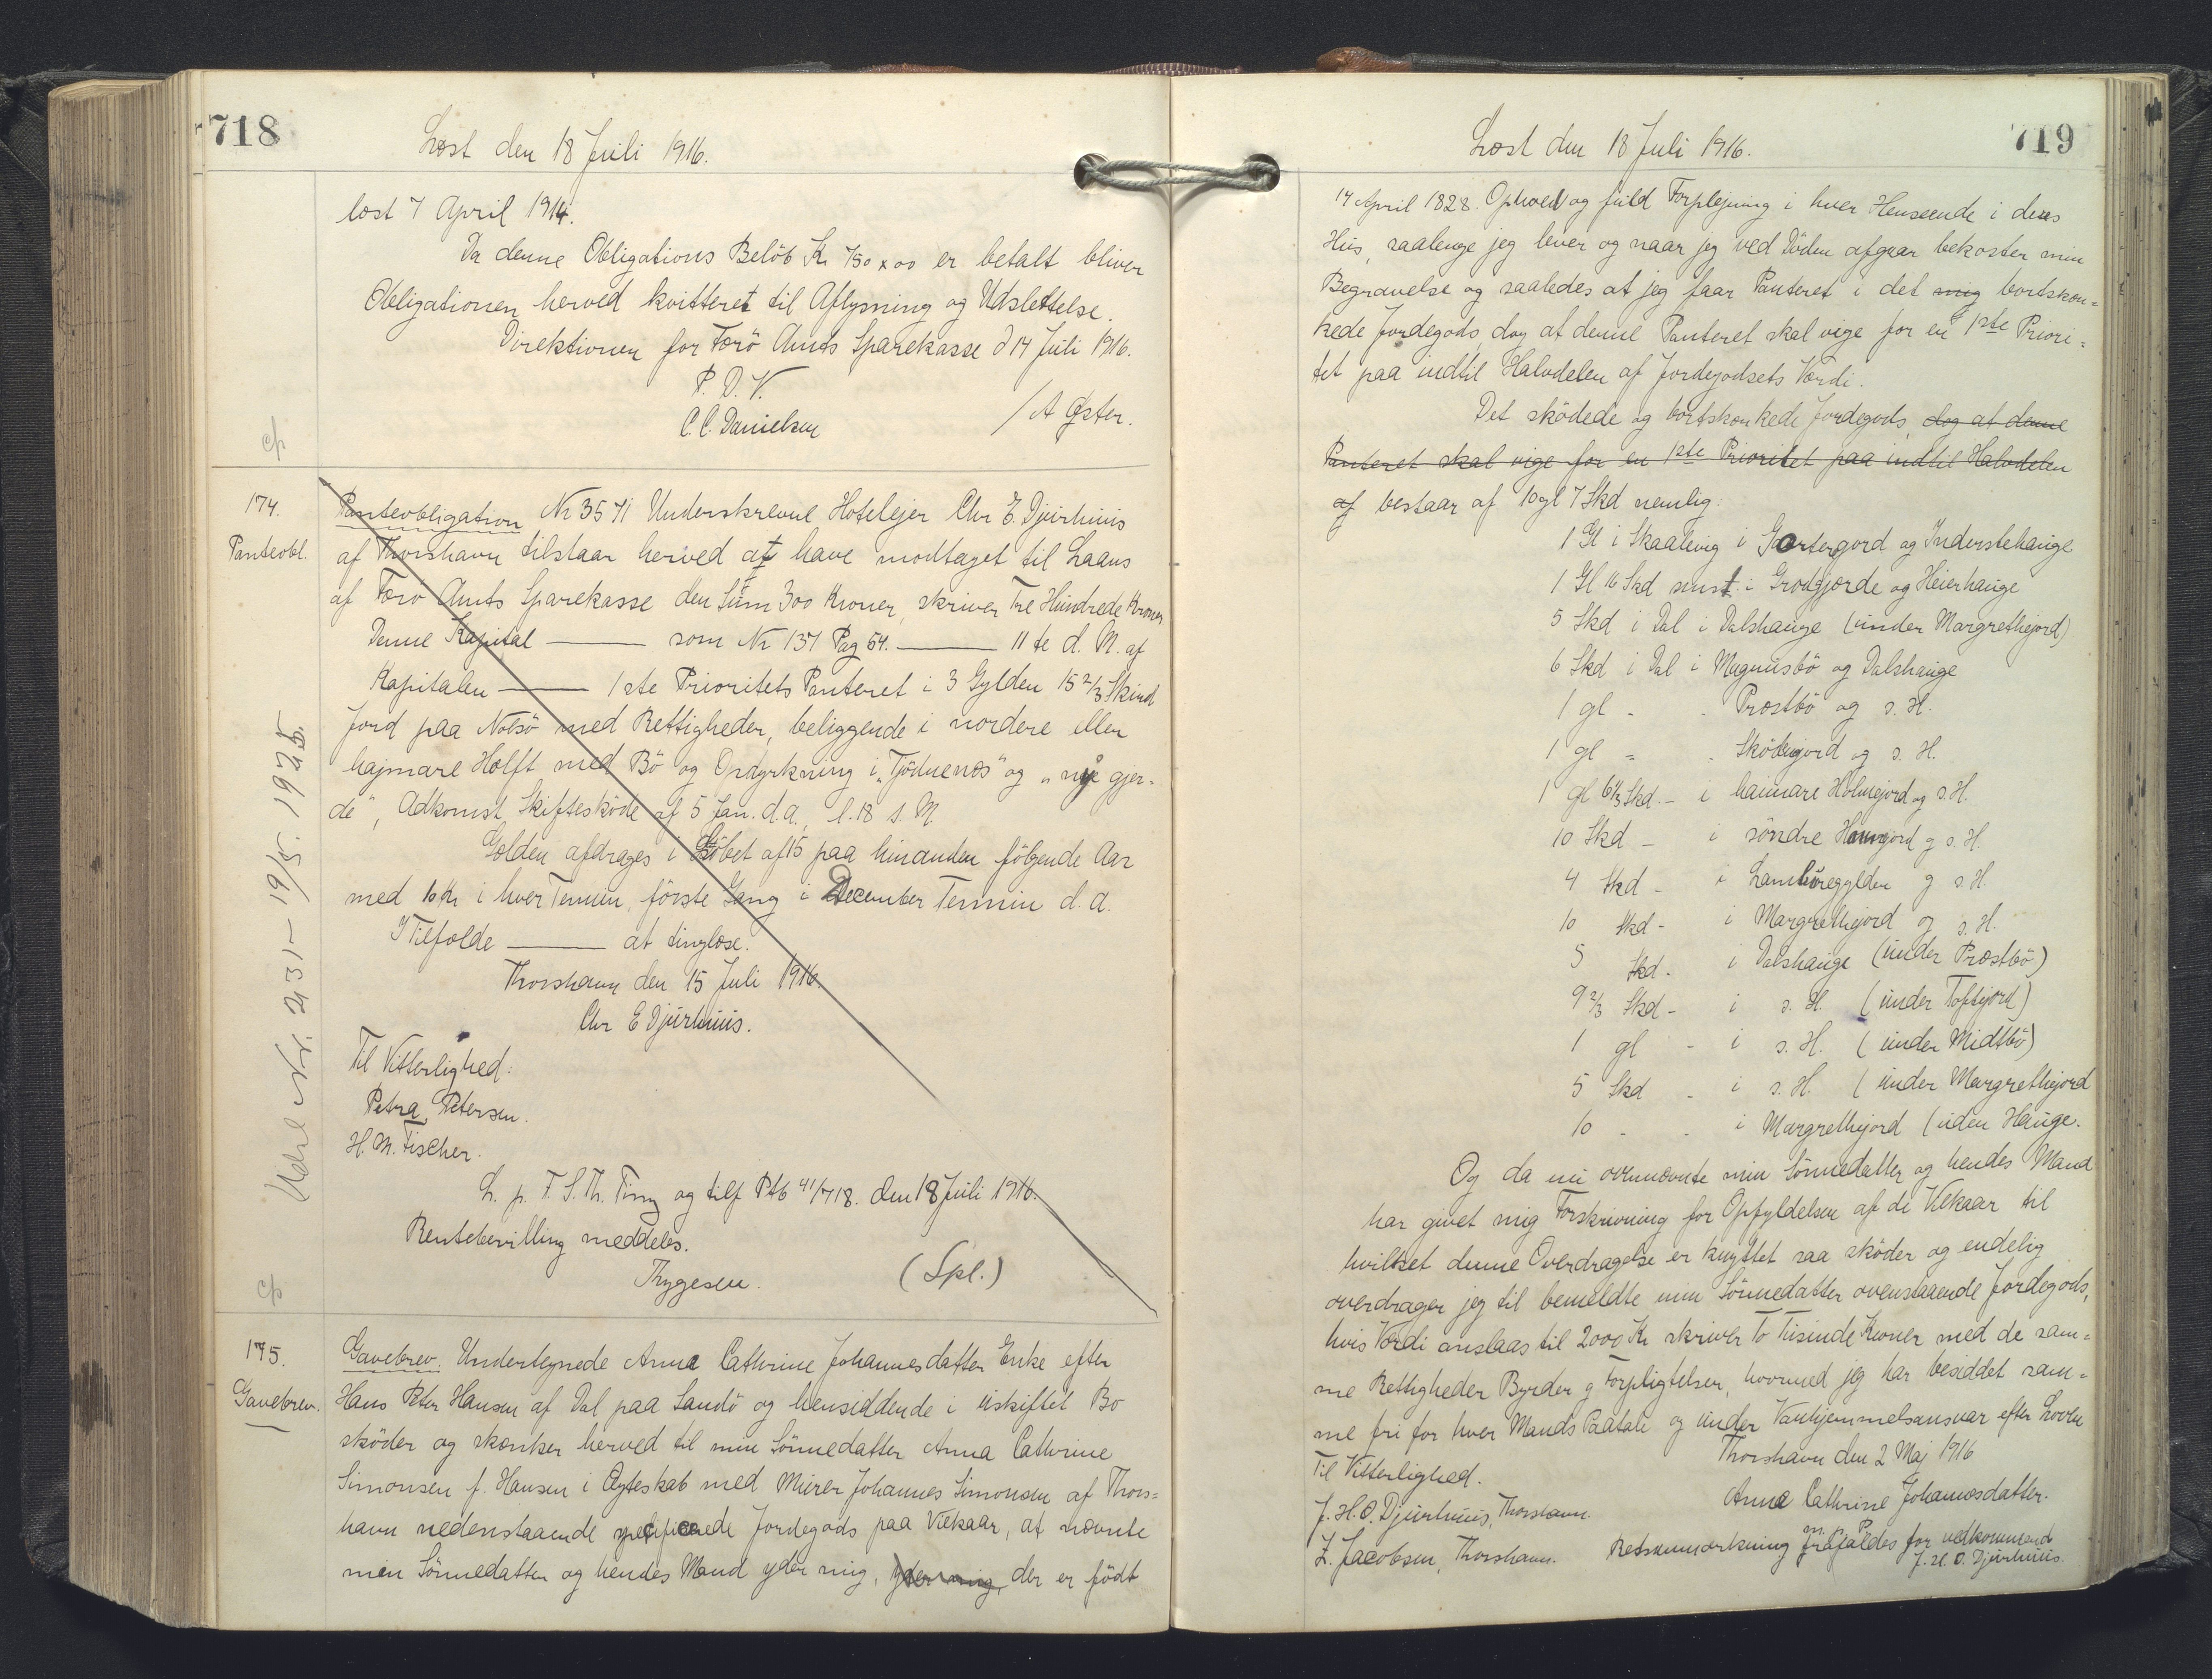 718
Læst den 18 Juli 1916.
læst 7 April 1914.
Da denne Obligations Belöb Kr 750 x 00 er betalt bliver
Obligationen herved kvitteret til Aflysning og Udslettelse.
Direktionen for Færö Amts Sparekasse d 17 Juli 1916.
P. D. V.
C. C. Danielsen / A Øster.
174.
Panteobl.
Panteobligation Nr 3571 Underskrevne Hotelejer Chr E. Djurhuus
af Thorshavn tilstaar herved at have modtaget til Laans
af Færö Amts Sparekasse den Sum 300 Kroner, skriver Tre Hundrede Kroner
Denne Kapital ——— som Nr 137 Pag 54. ——— 11 te d. M. af
Kapitalen ——— 1ste Prioritets Panteret i 3 Gylden 15 2/3 Skind
Jord paa Nolsö med Rettigheder, beliggende i nordere eller
hajmare Hælft med Bö og Opdyrkning i „Tjöduenæs" og „nýe gjer-
de", Adkomst Skifteskøde af 5 Jan. d.a., l. 18 s. M.
Gælden afdrages i Löbet af 15 paa hinanden följende Aar
med 10 Kr i hver Termin, förste Gang i December Termin d. a.
I Tilfælde ——— at tinglæse.
Thorshavn den 15 Juli 1916.
Chr E Djurhuus.
Til Vitterlighed:
Petra Petersen.
H. M. Fischer.
L. p. F. S. Th. Ting og tilf Ptb 41/718. den 18 Juli 1916.
Rentebevilling meddeles.
Thygesen. (Spl.)
Udsl Nr. 231 - 19/5. 1925.
175.
Gavebrev.
Gavebrev. Undertegnede Anna Cathrine Johannesdatter Enke efter
Hans Peter Hansen af Dal paa Sandö og hensiddende i uskiftet Bo
sköder og skænker herved til min Sönnedatter Anna Cathrine
Simonsen f. Hansen i Ægteskab med Murer Johannes Simonsen af Thors=
havn nedenstaaende specificerede Jordegods paa Vilkaar, at nævnte
min Sönnedatter og hendes Mand yder mig, yder mig, der er födt
719
Læst den 18 Juli 1916.
17 April 1828. Ophold og fuld Forplejning i hver Henseende i deres
Hus, saalenge jeg lever og naar jeg ved Döden afgaar bekoster min
Begravelse og saaledes at jeg faar Panteret i det mig bortskæn=
kede Jordegods dog at denne Panteret skal vige for en 1ste Priori=
tet paa indtil Halvdelen af Jordegodsets Værdi.
Det skødede og bortskænkede Jordegods, dog at denne
Panteret skal vige for en 1ste Prioritet paa indtil Halvdelen
af bestaar af 10 gl 7 Skd nemlig.
1 Gl i Skaalevig i Gortegjord og Inderstehauge
1 Gl 16 Skd smst. i Grodgjærde og Heierhauge
5 Skd i Dal i Dalshauge (under Margrethejord)
6 Skd i Dal i Magnusbö og Dalshauge
1 gl - - Præstbö og s. H.
1 gl - - Sködejord og s. H.
1 gl 6 1/3 Skd. - i haimare Holmejord og s. H.
10 Skd - i söndre jord og s. H.
4 Skd - i Lamhuregylden og s H.
10 Skd - i Margrethejord og s. H.
5 Skd. i Dalshauge (under Præstbö)
9 2/3 Skd - i s. H. (under Toftjord)
1 gl - i s. H. (under Midtbö)
5 Skd - i s. H. (under Margrethejord
10 - - i Margrethejord (uden Hauge.
Og da nu ovennævnte min Sönnedatter og hendes Mand
har givet mig Forskrivning for Opfyldelsen af de Vilkaar til
hvilket denne Overdragelse er knyttet saa sköder og endelig
overdrager jeg til bemeldte min Sönnedatter ovenstaaende Jordegods,
hvis Værdi anslaas til 2000 Kr skriver To Tusinde Kroner med de sam=
me Rettigheder Byrder og Forpligtelser, hvormed jeg har besiddet sam=
me fri for hver Mands Paatale og under Vanhjemmelsansvar efter Loven
Thorshavn den 2 Maj 1916
Til Vitterlighed. Anna Cathrine Johannesdatter.
J. H. O. Djurhuus, Thorshavn.
Z. Jacobsen, Thorshavn. Retsanmærkning frafaldes for vedkommende
J. H. O. Djurhuus.